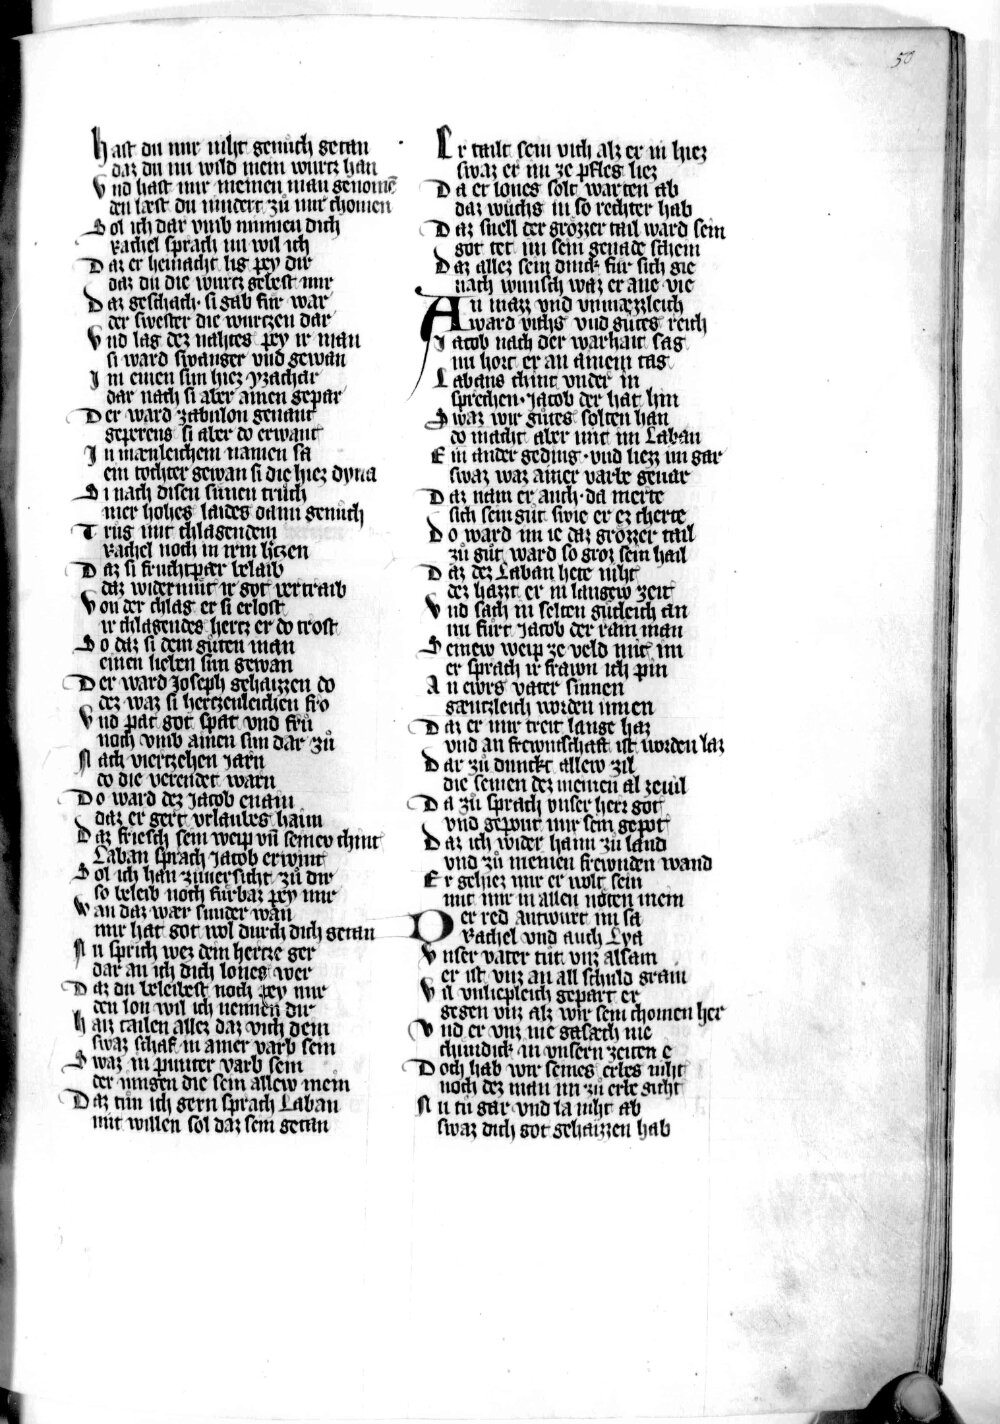 50
Hast du mir niht genůch getan
daz du nu wild mein wurtz han
Vnd hast mir meinen man genomē
den læst du nindert zů mir chomen
Sol ich dar vmb minnen dich
Rachel sprach nu wil ich
Daz er heinacht lig pey dir
daz du die wurtz gebest mir
Daz geschach · si gab für war
der swester die wurtzen dar
Vnd lag dez nahtes pey ir man
si ward swanger vnd gewan
Im einen sun hiez yzachar
dar nach si aber ainen gepar
Der ward zabulon genant
geperens si aber do erwant
In mænleichem namen sa
ein tochter gewan si die hiez dyna
Si nach disen sünen trůch
nier hohes laides dann genůch
Trůg mit chlagendem
Rachel noch in irm hertzen
Daz si fruchtpær belaib
daz widermůt ir got vertraib
Von der chlag er si erlost
ir chlagendes hertz er do trost
So daz si dem gůten man
einen lieben sun gewan
Der ward Joseph gehaizzen do
dez waz si hertzenleichen fro
Vnd pat got spat vnd frů
noch vmb ainen sun dar zů
Nach viertzehen Jarn
do die verendet warn
Do ward dez Jacob enain
daz er gert vrlaubes haim
Daz friesch sein weip vñ seinev chint
Laban sprach Jacob erwint
Sol ich han zůuersicht zů dir
so beleib noch fürbaz pey mir
Wan daz wær sunder wan
mir hat got wol durch dich getan
Nu sprich wez dein hertze ger
dar an ich dich lones wer
Daz du beleibest noch pey mir
den lon wil ich nennen dir
Haiz tailen allez daz vich dein
swaz schaf in ainer varb sein
Swaz in punter varb sein
der mugen die sein allew mein
Daz tůn ich gern sprach Laban
mit willen sol daz sein getan
Er tailt sein vich alz er in hiez
swaz er im ze pfleg liez
Da er lones solt warten ab
daz wůchs in so rechter hab
Daz snell der grözzer tail ward sein
got tet im sein genade schein
Daz allez sein dinck für sich gie
nach wunsch waz er ane vie
An mazz vnd vnmæzzleich
ward vichs vnd gůtes reich
Jacob nach der warhait sag
nu hort er an ainem tag
Labans chint vnder in
sprechen · Jacob der hat hin
Swaz wir gůtes solten han
do macht aber mit im Laban
Ein ander geding · vnd liezz im gar
swaz waz ainer varbe gevar
Daz nam er auch · da merte
sich sein gůt swie er ez cherte
Do ward im ie daz grözzer tail
zů gůt ward so groz sein hail
Daz dez Laban hete niht
dez hazzt er in langew zeit
Vnd sach in selten gütleich an
nu fůrt Jacob der rain man
Seinew weip ze veld mit im
er sprach ir frawn ich pin
An ewrs vater sinnen
gæntzleich worden innen
Daz er mir treit lange haz
vnd an frewntschaft ist worden laz
Dar zů dunckt allew zil
die seinen dez meinen al ze vil
Da zů sprach vnser herr got
vnd gepeut mir sein gepot
Daz ich wider haim zu land
vnd zů meinen frewnden wand
Er gehiez mir er wolt sein
mit mir in allen nöten mein
Der red antwurt im sa
Rachel vnd auch Lya
Vnser vater tůt vnz alsam
er ist vnz an all schuld gram
Vil vnliepleich gepart er
gegen vnz alz wir sein chomen her
Vnd er vnz nie gesæch nie
chündick in vnsern zeiten e
Doch hab wir seines erbes niht
noch dez man im zů erbe giht
Nu tů gar vnd la niht ab
swaz dich got gehaizzen hab